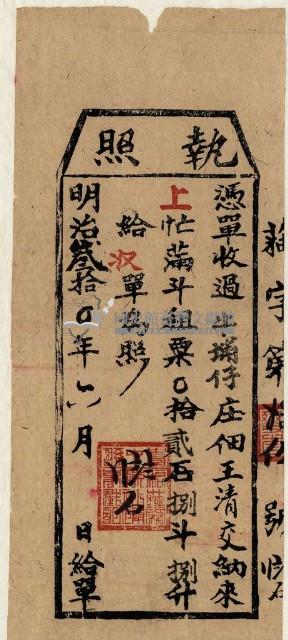 執照
蘓字第拾伍號
憑單收過 埔仔庄佃王清交納來
上忙滿斗租粟〇拾貳石捌斗捌升
給收單為照
明治叁拾〇年六月 日給單